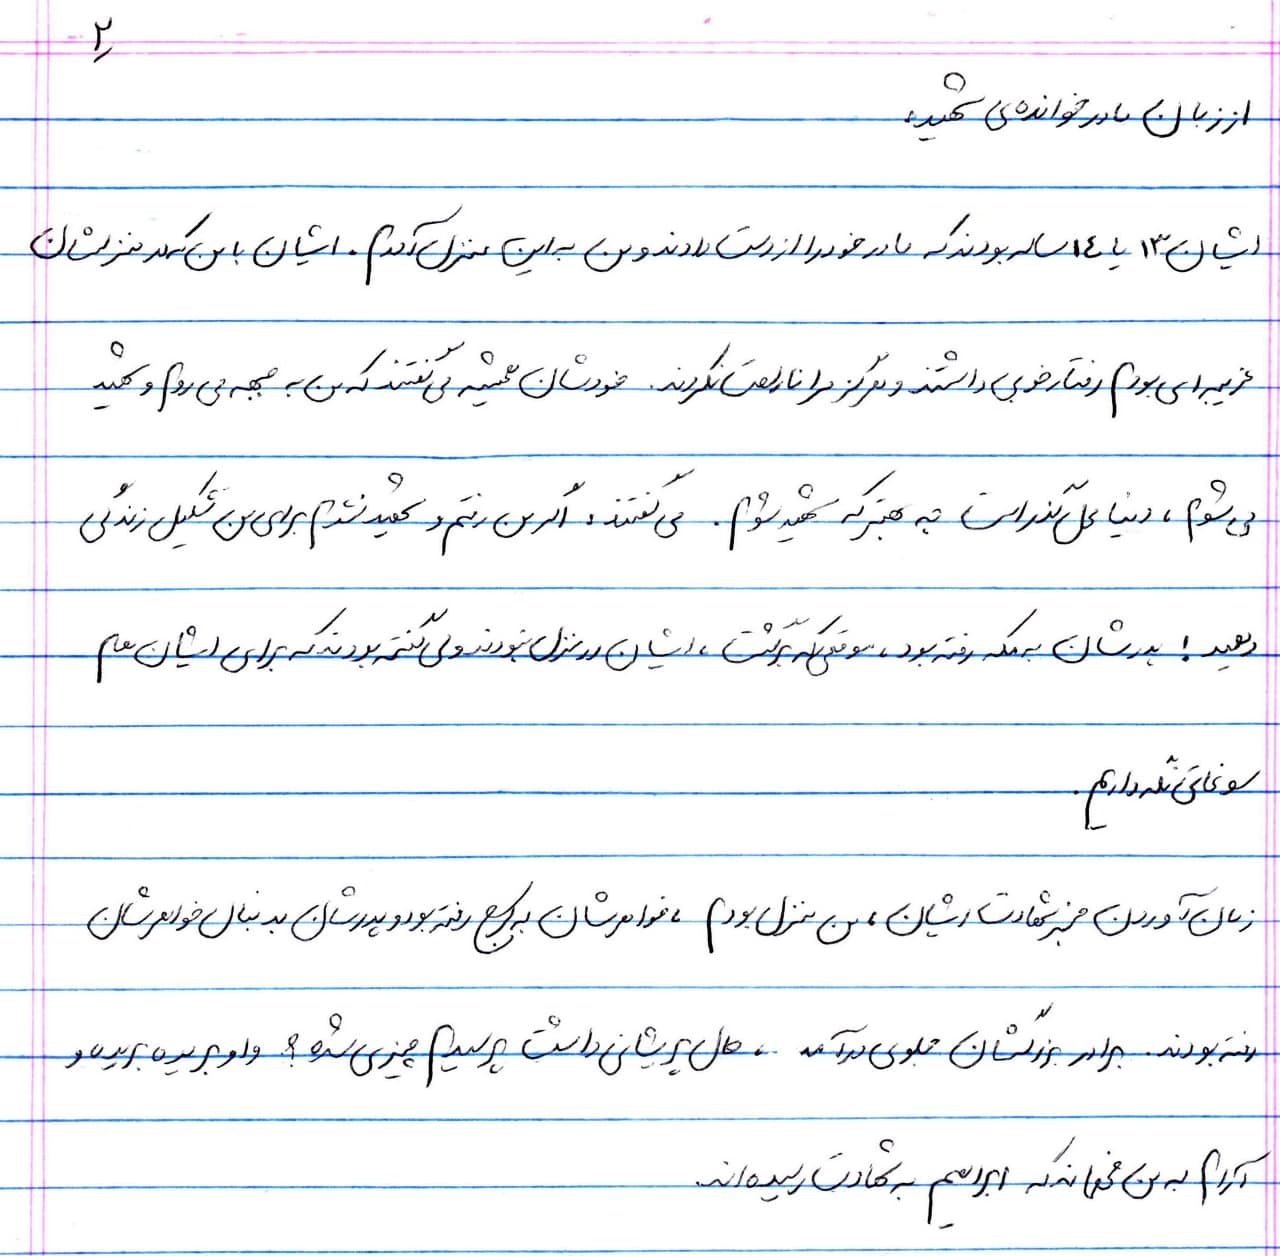 ۲
از زبان مادر خوانده‌ی شهید:
ایشان ۱۳ یا ۱۴ ساله بودند که مادر خود را از دست دادند و من به این منزل آمدم. ایشان با من که در منزلشان
غریبه‌ای بودم رفتار خوبی داشتند و هرگز مرا ناراحت نکردند. خودشان همیشه می‌گفتند که من به جبهه می‌روم و شهید
می‌شوم، دنیا محل گذر است چه بهتر که شهید شوم. می‌گفتند: اگر من رفتم و شهید نشدم برای من تشکیل زندگی
دهید! پدرشان به مکه رفته بود، موقعی که برگشت، ایشان در منزل نبودند ولی گفته بودند که برای ایشان هم
سوغاتی نگه داریم.
زمان آوردن خبر شهادت ایشان، من منزل بودم، خواهرشان به کرج رفته بود و پدرشان به دنبال خواهرشان
رفته بودند. برادر بزرگشان جلوی در آمد، حال پریشانی داشت پرسیدم چیزی شده؟ و او بریده بریده و
آرام به من فهماند که ابراهیم به شهادت رسیده‌اند.